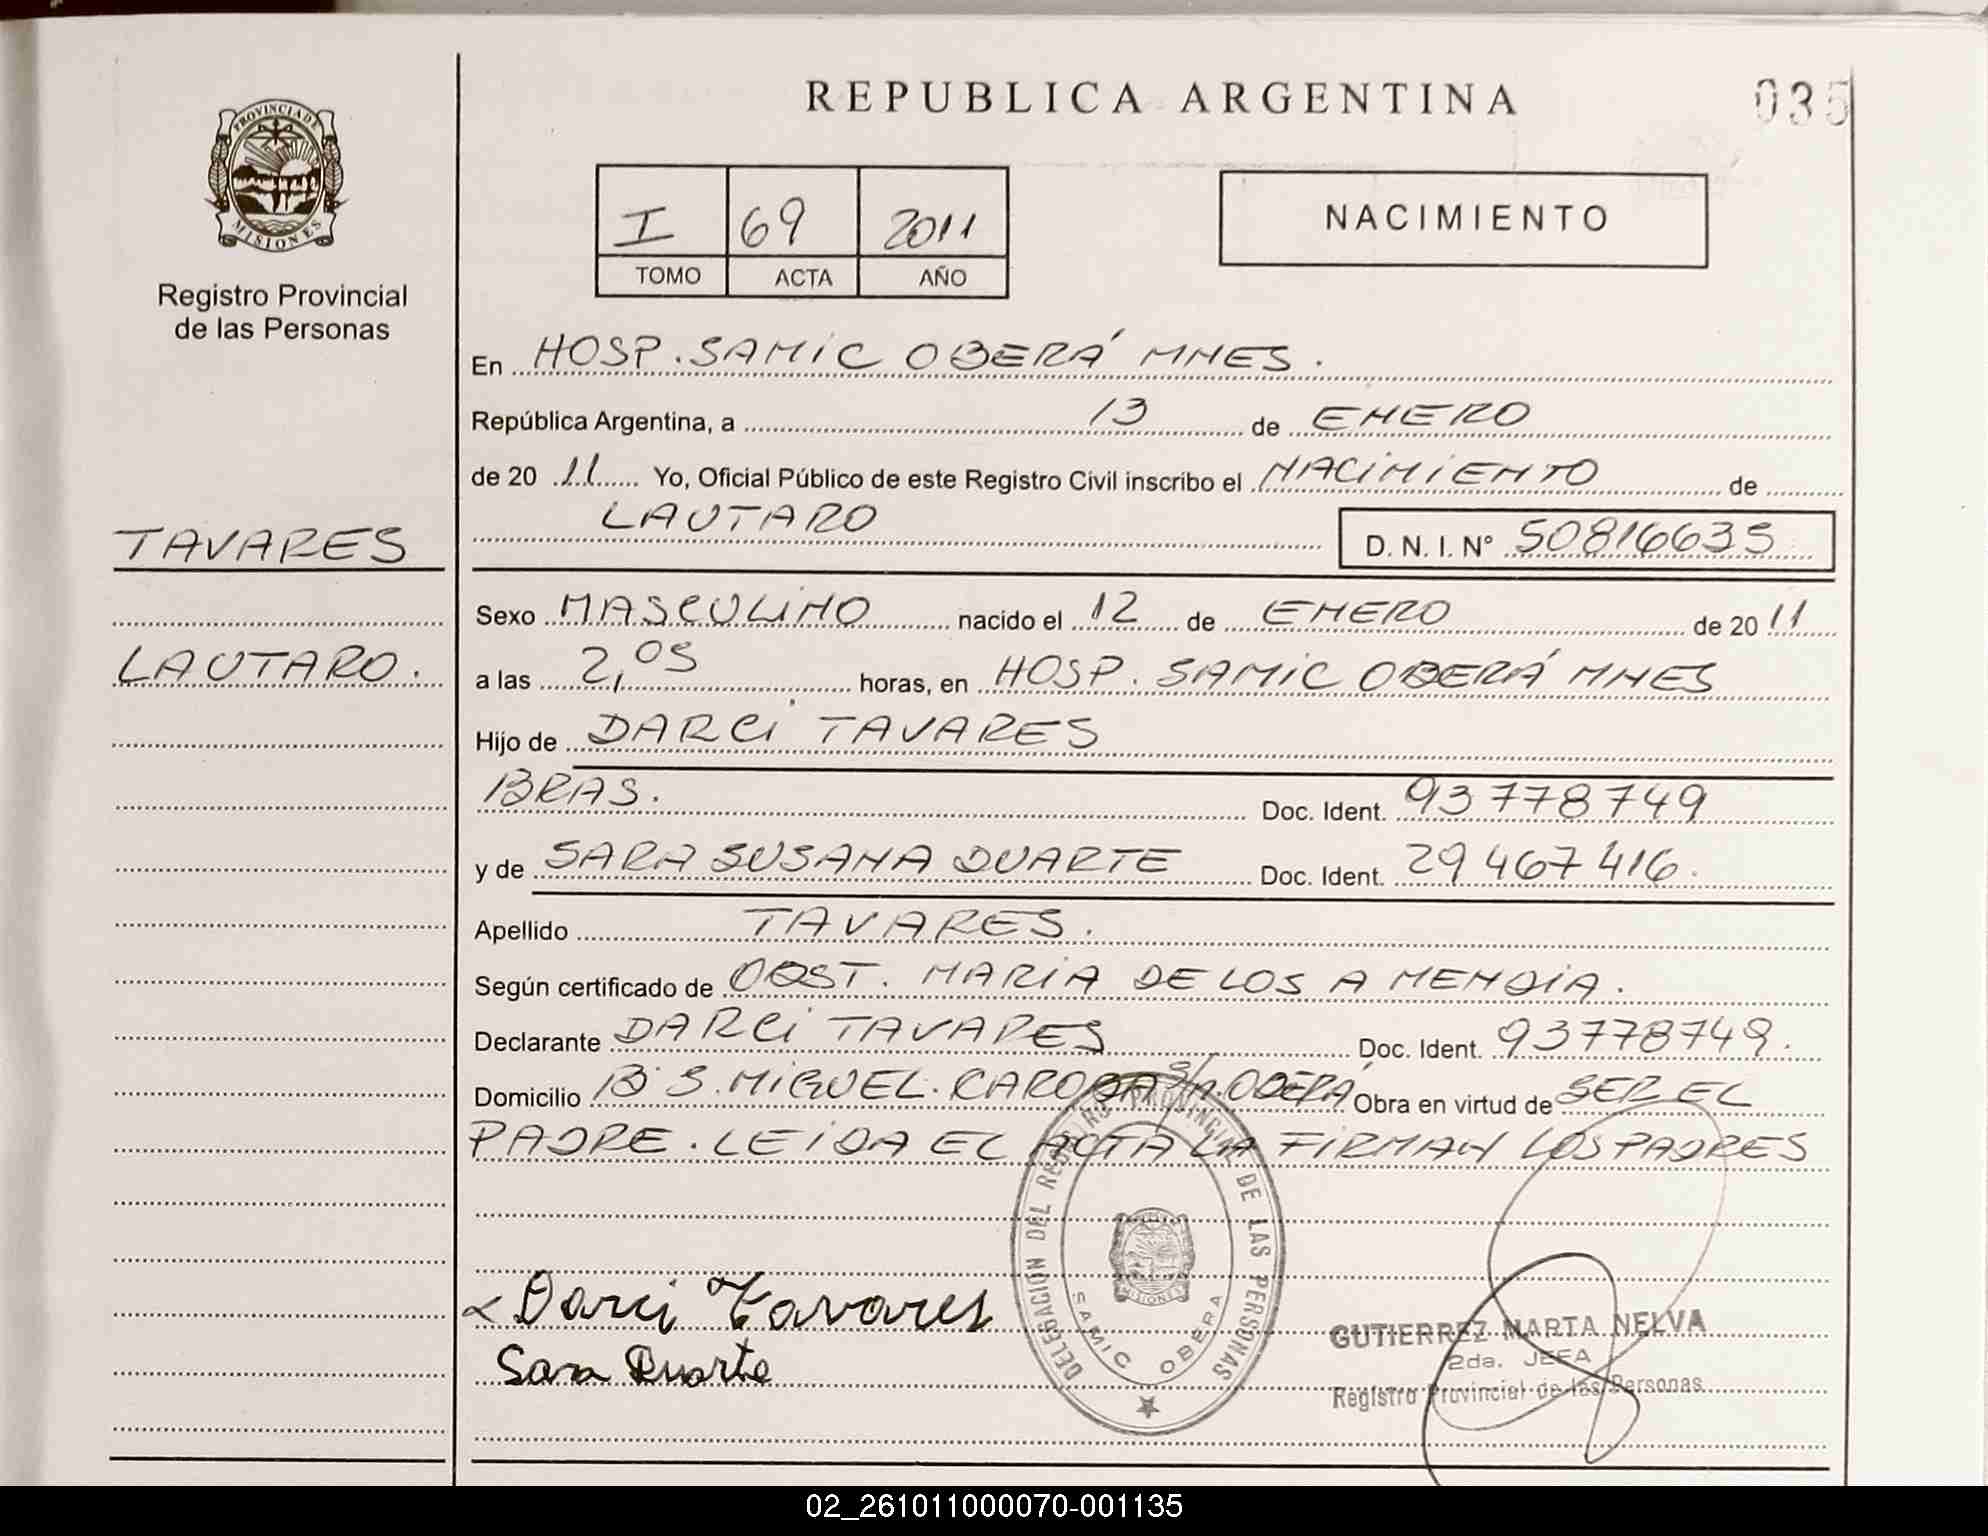 REPUBLICA ARGENTINA
035
PROVINCIA DE
MISIONES
Registro Provincial
de las Personas
I 69 2011
TOMO ACTA AÑO
NACIMIENTO
En HOSP. SAMIC OBERÁ MNES.
República Argentina, a 13 de ENERO
de 20 11 Yo, Oficial Público de este Registro Civil inscribo el NACIMIENTO de
LAUTARO D. N. I. N° 50816635
TAVARES
LAUTARO.
Sexo MASCULINO nacido el 12 de ENERO de 20 11
a las 2,05 horas, en HOSP. SAMIC OBERÁ MNES
Hijo de DARCI TAVARES
BRAS. Doc. Ident. 93778749
y de SARA SUSANA DUARTE Doc. Ident. 29467416.
Apellido TAVARES.
Según certificado de OBST. MARIA DE LOS A MENDIA.
Declarante DARCI TAVARES Doc. Ident. 93778749.
Domicilio Bº S. MIGUEL. CAROBA S/N. OBERÁ Obra en virtud de SER EL
PADRE. LEIDA EL ACTA LA FIRMAN LOS PADRES
DELEGACIÓN DEL REGISTRO PROVINCIAL DE LAS PERSONAS
MISIONES
SAMIC OBERA
Darci Tavares
Sara Duarte
GUTIERREZ MARTA NELVA
2da. JEFA
Registro Provincial de las Personas
02_261011000070-001135